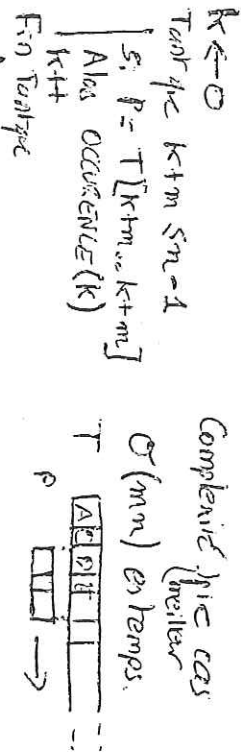 k ← 0
Tantque k+m ≤ n-1
Si P = T[k+m..k+m]
Alors OCCURENCE(k)
k++
Fin Tantque
Complexité pire cas
meilleur
O(mn) en temps.
T A
P